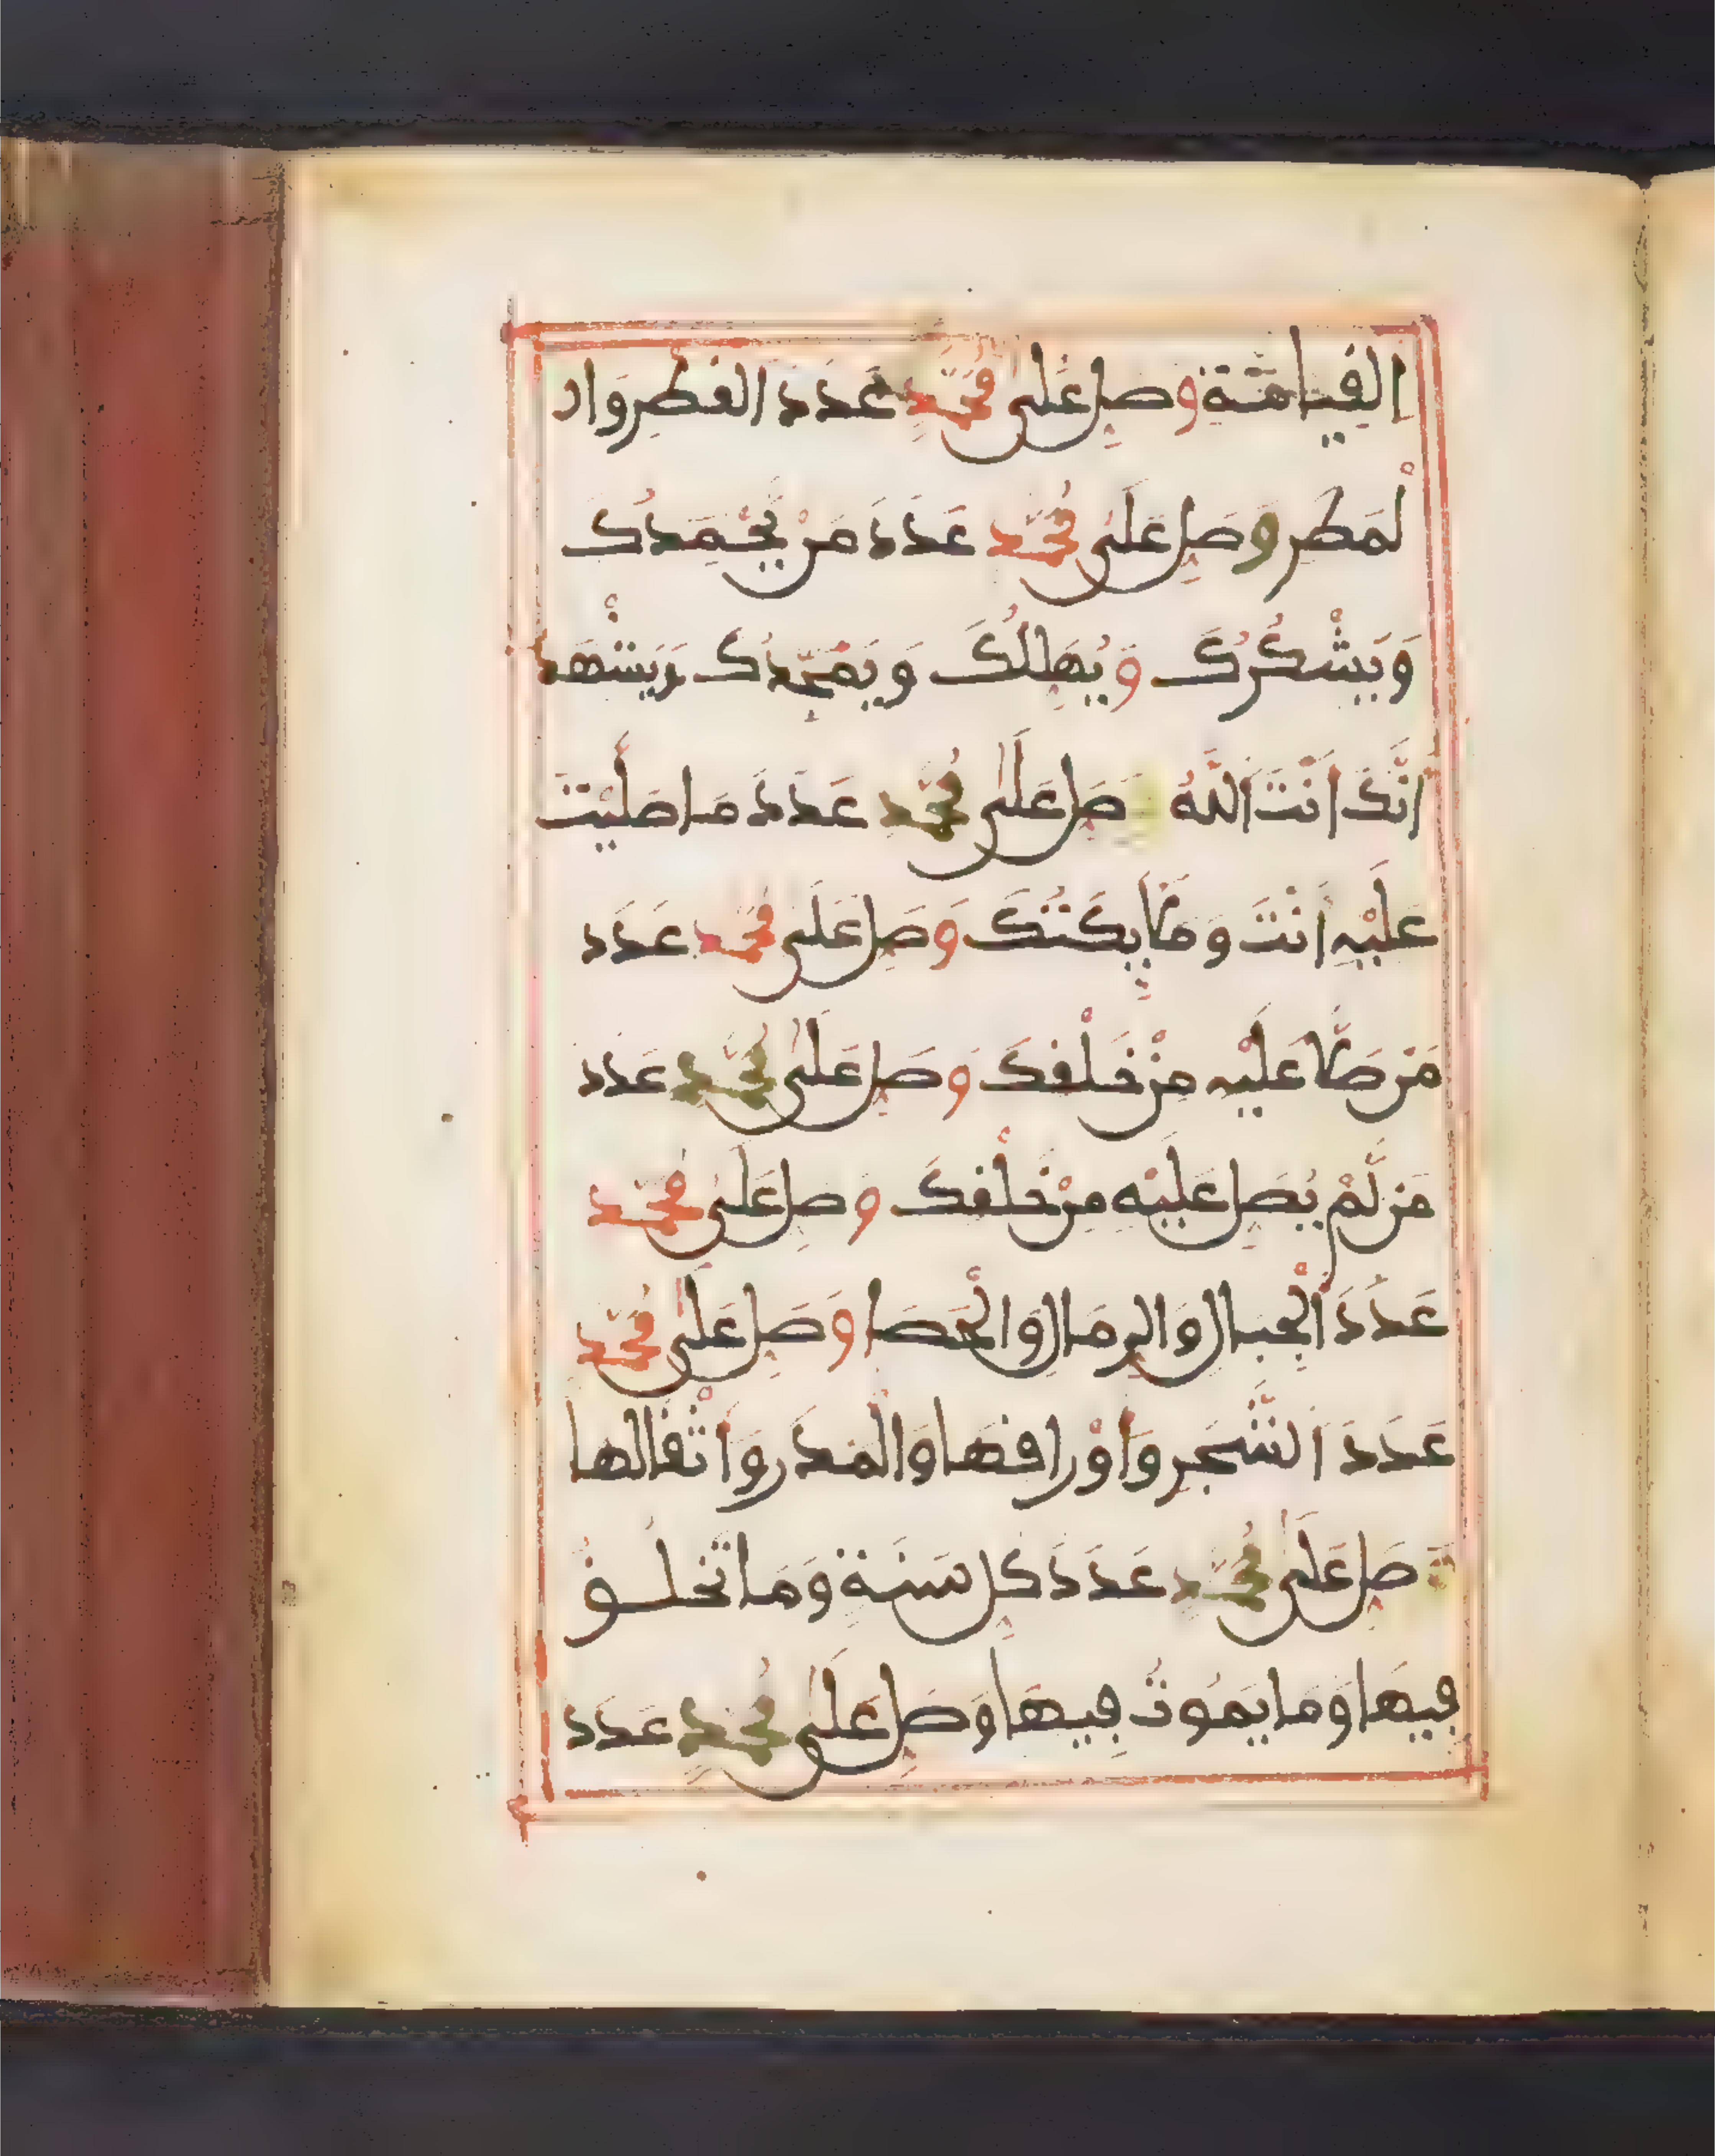 الفيامة وصل على محمد عدد الفطر وار
لمطر وصل على محمد عدد من يحمدك
ويشكرك ويهللك ويمجدك ويشهد
انك انت الله وصل على محمد عدد ما صليت
عليه انت وملايكتك وصل على محمد عدد
من صلا عليه من خلفك وصل على محمد عدد
من لم يصل عليه من خلفك وصل على محمد
عدد الجبال والرمال والحصا وصل على محمد
عدد الشجر واورافها والمدر واثفالها
وصل على محمد عدد كل سنة وما تخلف
فيها وما يموت فيها وصل على محمد عدد